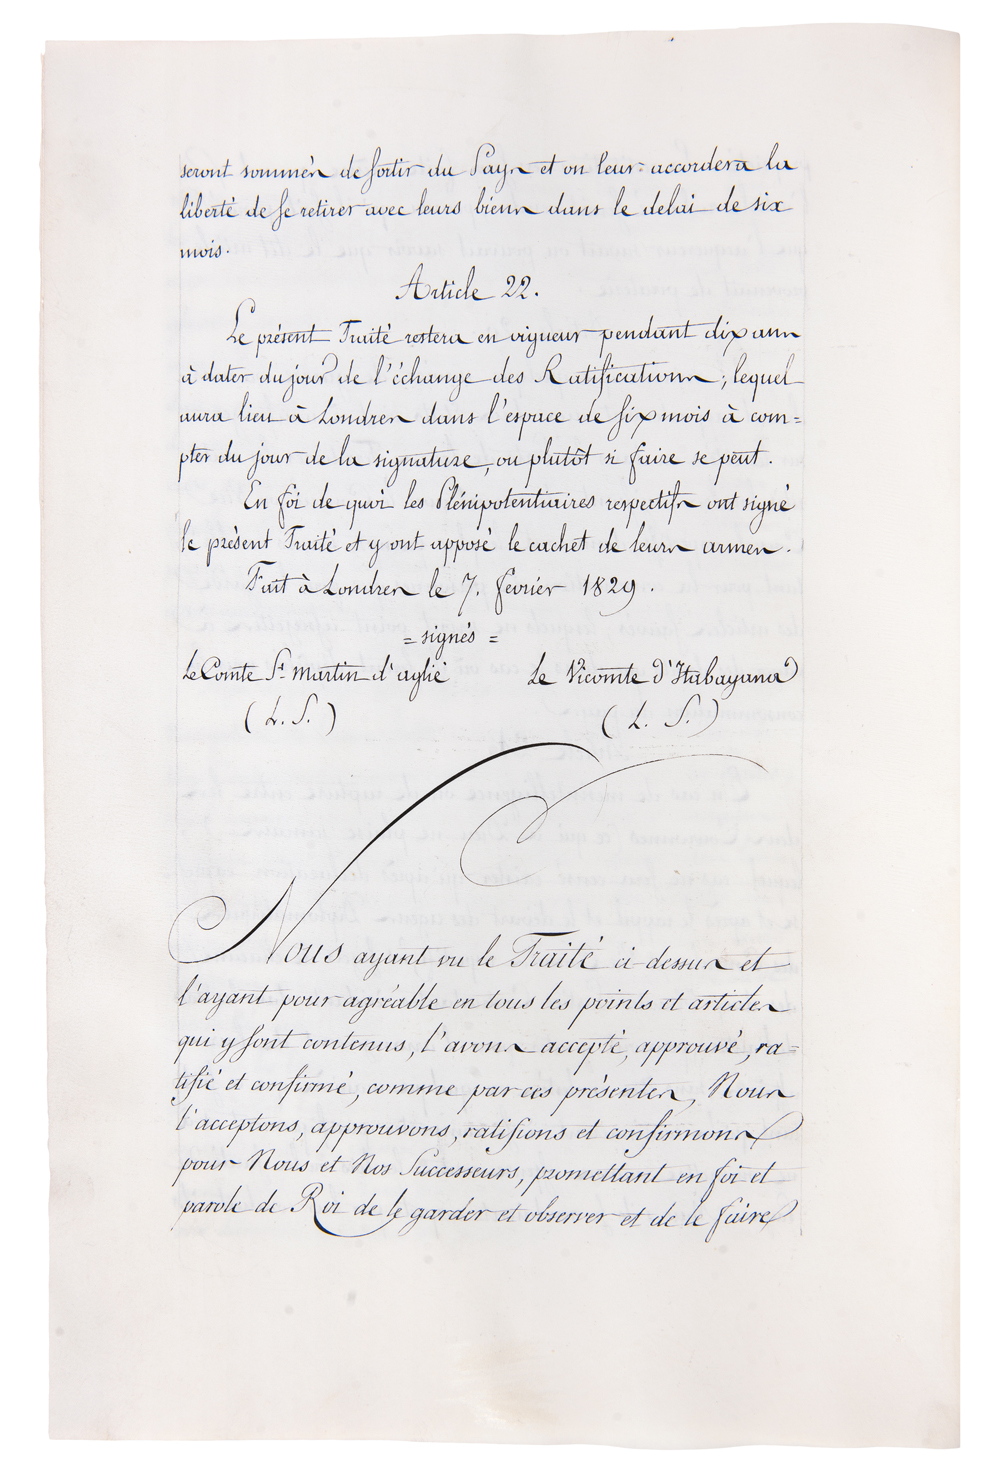 seront sommés de sortir du Pays et on leur accordera la
liberté de se retirer avec leurs biens dans le delai de six
mois.
Article 22.
Le présent Traité restera en vigueur pendant dix ans
à dater du jour de l'échange des Ratifications; lequel
aura lieu à Londres dans l'espace de six mois à com=
pter du jour de la signature, ou plutôt si faire se peut.
En foi de quoi les Plénipotentiaires respectifs ont signé
le présent Traité et y ont apposé le cachet de leurs armes.
Fait à Londres le 7. fevrier 1829.
= signés =
Le Comte St. Martin d'aglié Le Vicomte d'Itabayana
(L. S.) (L. S.)
Nous ayant vu le Traité ci-dessus et
l'ayant pour agréable en tous les points et articles
qui y sont contenus, l'avons accepté, approuvé, ra=
tifié et confirmé, comme par ces présentes, Nous
l'acceptons, approuvons, ratifions et confirmons
pour Nous et Nos Successeurs, promettant en foi et
parole de Roi de le garder et observer et de le faire